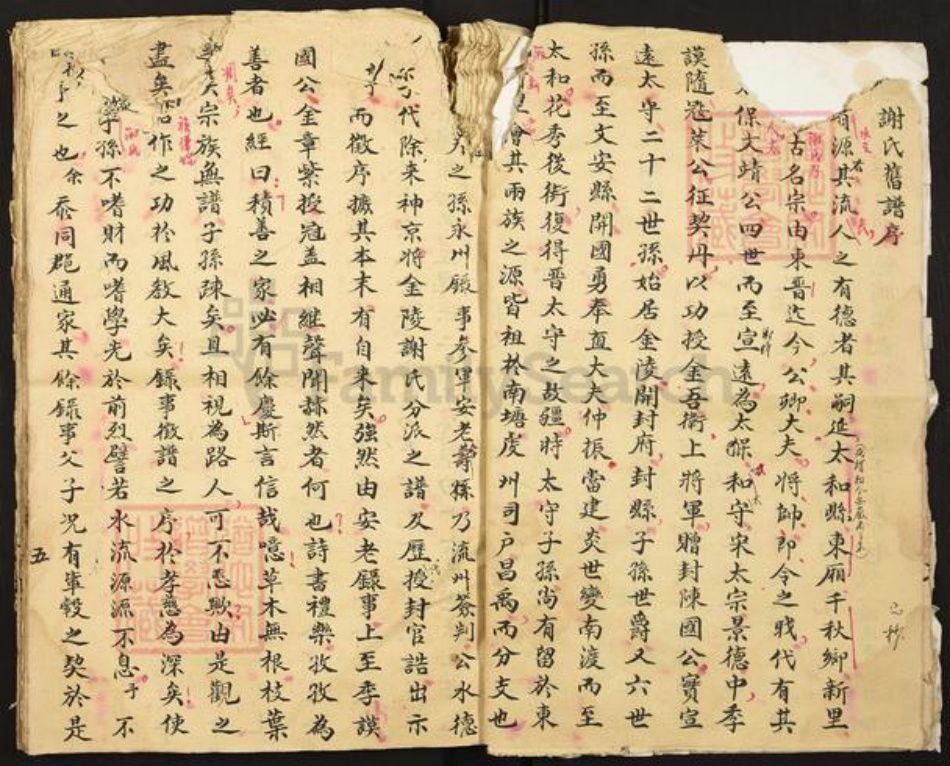 謝氏舊譜序
有源其流人之有德者其嗣延太和縣東厢千秋鄉新里
古名宗由東晉迄今公卿大夫將帥郎令之戝代有其
保文靖公四世而至宣遠為太保和守宋太宗景德中季
謨隨冦萊公征契丹以功授金吾衛上將軍贈封陳國公實宣
遠太守二十二世孫始居金陵開封府封縣子孫世爵又六世
孫而至文安縣開國勇奉直大夫仲振當建炎世變南渡而至
太和花秀後街復得晋太守之故疆時太守子孫尚有留於東
澮其兩族之源皆祖於南塘虔州司户昌禹而分支也
之孫永州𨫼事參軍安老壽孫乃流州簽判公水德
代除来神京将金陵謝氏分派之譜及歷授封官誥出示
而徵序攄其本末有自来矣強然由安老録事上至季謨
國公金章紫授冠盖相維聲聞赫然者何也詩書禮樂孜孜為
善者也經曰積善之家必有餘慶斯言信哉噫草木無根枝葉
宗族無譜子孫疎矣且相視為路人可不悲歟由是觀之
盡矣作之功於風教大矣録事徵譜之序於孝為深矣使
學孫不嗜財而嗜學先於前烈譬若水流源源不息于不
之也余忝同郡通家其餘録事父子况有軰毂之契於是
五